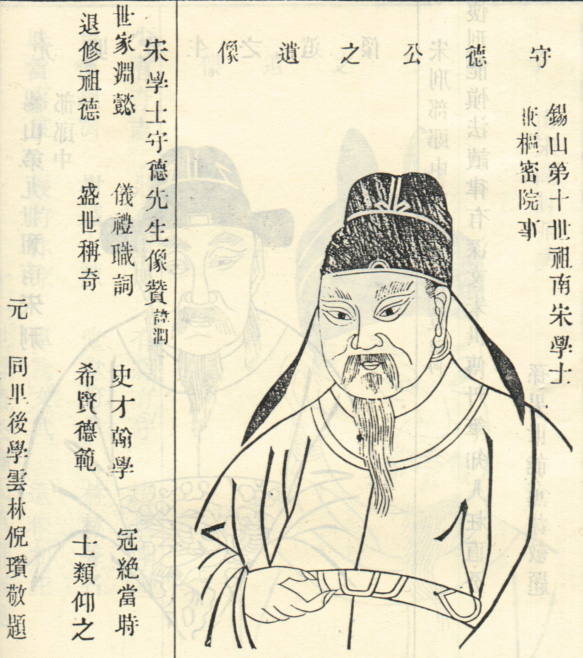 守德公之遺像
錫山第十世祖南宋學士
兼樞密院事
宋學士守德先生像贊諱潤
世家淵懿 儀禮職詞 史才翰學 冠絶當時
退修祖德 盛世稱奇 希賢德範 士類仰之
元 同里後學雲林倪瓚敬題